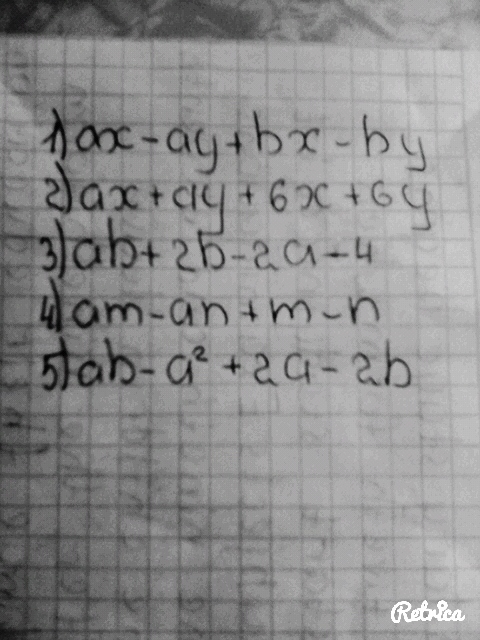 1) ax - ay + bx - by
2) ax + ay + 6x + 6y
3) ab + 2b - 2a - 4
4) am - an + m - n
5) ab - a² + 2a - 2b
Retrica